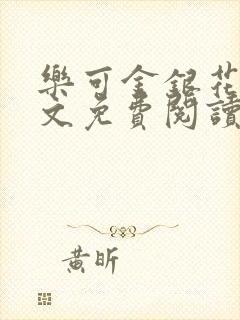 樂可金銀花
文免費閱讀
黃昕